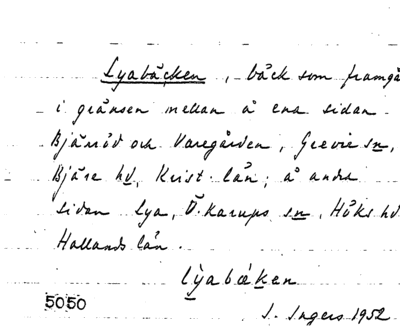 Lyabäcken, bäck som framgå
i gränsen mellan å ena sidan
Bjäröd och Varegården, Grevie sn,
Bjäre hd, Krist. län; å andra
sidan Lya, Ö. Karups sn, Höks hd
Hallands län.
lỳabäken
5050
I. Ingers 1952